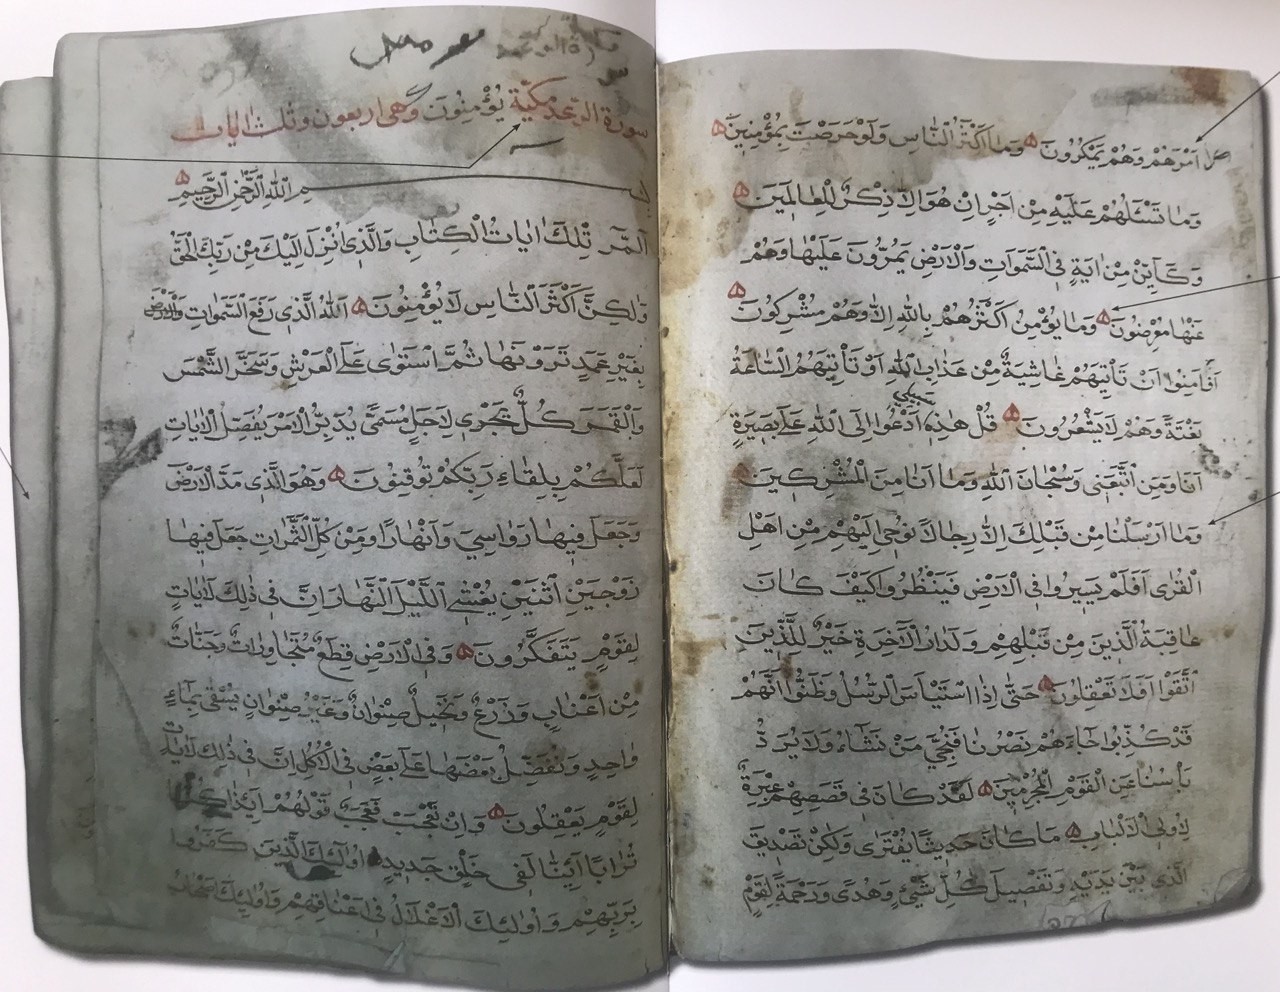 اَمْرَهُمْ وَهُمْ يَمْكُرُونَ وَمَا اَكْثَرُ النَّاسِ وَلَوْ حَرَصْتَ بِمُؤْمِنِينَ
وَمَا تَسْئَلُهُمْ عَلَيْهِ مِنْ اَجْرٍ اِنْ هُوَ اِلَّا ذِكْرٌ لِلْعَالَمِينَ
وَكَاَيِّنْ مِنْ اٰيَةٍ فِي السَّمٰوَاتِ وَالْاَرْضِ يَمُرُّونَ عَلَيْهَا وَهُمْ
عَنْهَا مُعْرِضُونَ وَمَا يُؤْمِنُ اَكْثَرُهُمْ بِاللّٰهِ اِلَّا وَهُمْ مُشْرِكُونَ
اَفَاَمِنُوا اَنْ تَأْتِيَهُمْ غَاشِيَةٌ مِنْ عَذَابِ اللّٰهِ اَوْ تَأْتِيَهُمُ السَّاعَةُ
بَغْتَةً وَهُمْ لَا يَشْعُرُونَ قُلْ هٰذِهِ سَبِيلِي اَدْعُوا اِلَى اللّٰهِ عَلٰى بَصِيرَةٍ
اَنَا وَمَنِ اتَّبَعَنِي وَسُبْحَانَ اللّٰهِ وَمَا اَنَا مِنَ الْمُشْرِكِينَ
وَمَا اَرْسَلْنَا مِنْ قَبْلِكَ اِلَّا رِجَالًا نُوحِي اِلَيْهِمْ مِنْ اَهْلِ
الْقُرٰى اَفَلَمْ يَسِيرُوا فِي الْاَرْضِ فَيَنْظُرُوا كَيْفَ كَانَ
عَاقِبَةُ الَّذِينَ مِنْ قَبْلِهِمْ وَلَدَارُ الْاٰخِرَةِ خَيْرٌ لِلَّذِينَ
اتَّقَوْا اَفَلَا تَعْقِلُونَ حَتّٰى اِذَا اسْتَيْاَسَ الرُّسُلُ وَظَنُّوا اَنَّهُمْ
قَدْ كُذِبُوا جَاءَهُمْ نَصْرُنَا فَنُجِّيَ مَنْ نَشَاءُ وَلَا يُرَدُّ
بَأْسُنَا عَنِ الْقَوْمِ الْمُجْرِمِينَ لَقَدْ كَانَ فِي قَصَصِهِمْ عِبْرَةٌ
لِاُولِي الْاَلْبَابِ مَا كَانَ حَدِيثًا يُفْتَرٰى وَلٰكِنْ تَصْدِيقَ
الَّذِي بَيْنَ يَدَيْهِ وَتَفْصِيلَ كُلِّ شَيْئٍ وَهُدًى وَرَحْمَةً لِقَوْمٍ
يُؤْمِنُونَ سورة الرعد مكية وهى اربعون وثلث ايات
بِسْمِ اللّٰهِ الرَّحْمٰنِ الرَّحِيمِ
الٓمٓرٰ تِلْكَ اٰيَاتُ الْكِتَابِ وَالَّذِي اُنْزِلَ اِلَيْكَ مِنْ رَبِّكَ الْحَقُّ
وَلٰكِنَّ اَكْثَرَ النَّاسِ لَا يُؤْمِنُونَ اَللّٰهُ الَّذِي رَفَعَ السَّمٰوَاتِ وَالْاَرْضَ
بِغَيْرِ عَمَدٍ تَرَوْنَهَا ثُمَّ اسْتَوٰى عَلَى الْعَرْشِ وَسَخَّرَ الشَّمْسَ
وَالْقَمَرَ كُلٌّ يَجْرِي لِاَجَلٍ مُسَمًّى يُدَبِّرُ الْاَمْرَ يُفَصِّلُ الْاٰيَاتِ
لَعَلَّكُمْ بِلِقَاءِ رَبِّكُمْ تُوقِنُونَ وَهُوَ الَّذِي مَدَّ الْاَرْضَ
وَجَعَلَ فِيهَا رَوَاسِيَ وَاَنْهَارًا وَمِنْ كُلِّ الثَّمَرَاتِ جَعَلَ فِيهَا
زَوْجَيْنِ اثْنَيْنِ يُغْشِي اللَّيْلَ النَّهَارَ اِنَّ فِي ذٰلِكَ لَاٰيَاتٍ
لِقَوْمٍ يَتَفَكَّرُونَ وَفِي الْاَرْضِ قِطَعٌ مُتَجَاوِرَاتٌ وَجَنَّاتٌ
مِنْ اَعْنَابٍ وَزَرْعٌ وَنَخِيلٌ صِنْوَانٌ وَغَيْرُ صِنْوَانٍ يُسْقٰى بِمَاءٍ
وَاحِدٍ وَنُفَضِّلُ بَعْضَهَا عَلٰى بَعْضٍ فِي الْاُكُلِ اِنَّ فِي ذٰلِكَ لَاٰيَاتٍ
لِقَوْمٍ يَعْقِلُونَ وَاِنْ تَعْجَبْ فَعَجَبٌ قَوْلُهُمْ اَئِذَا كُنَّا
تُرَابًا اَئِنَّا لَفِي خَلْقٍ جَدِيدٍ اُولٰئِكَ الَّذِينَ كَفَرُوا
بِرَبِّهِمْ وَاُولٰئِكَ الْاَغْلَالُ فِي اَعْنَاقِهِمْ وَاُولٰئِكَ اَصْحَابُ